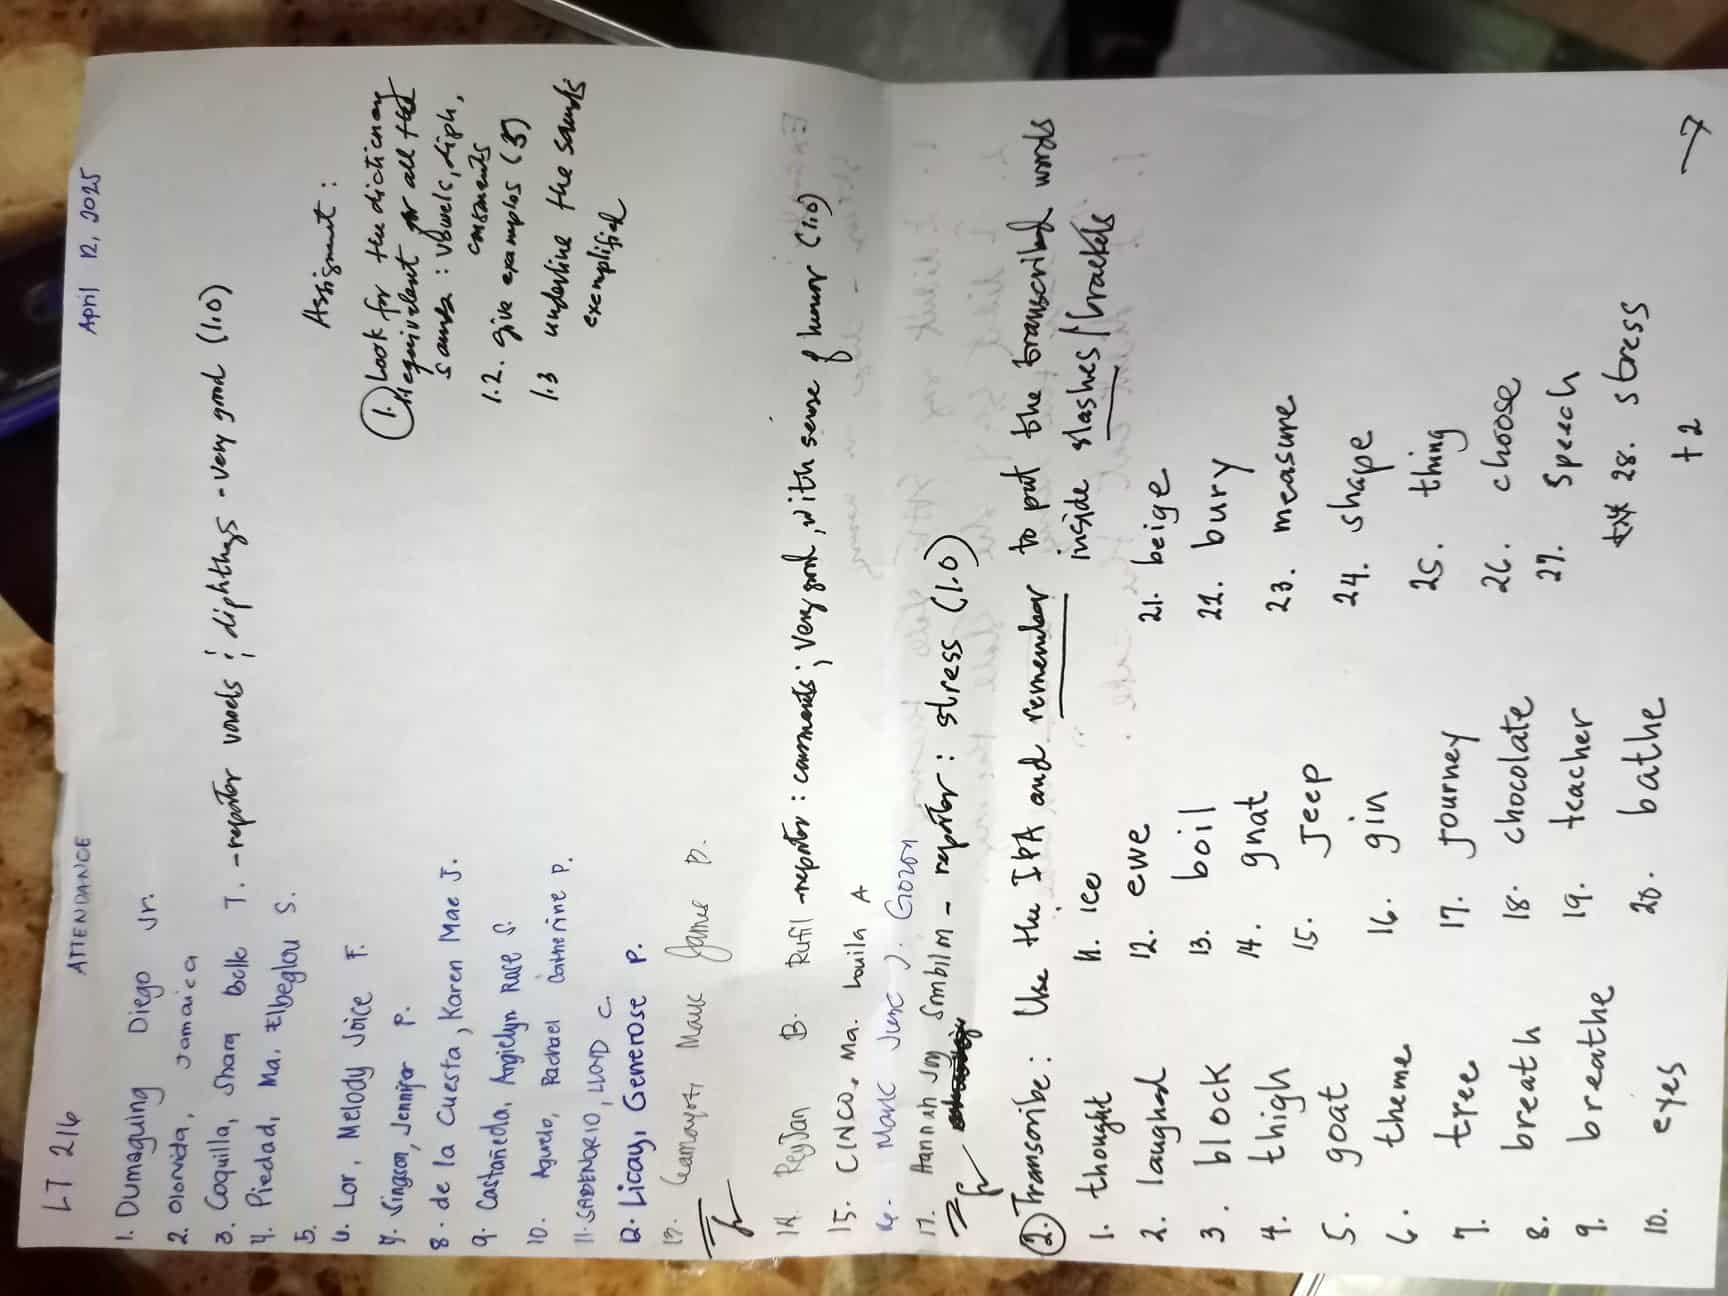 LT 216 ATTENDANCE April 12, 2025
1. Dumaguing Diego Jr.
2. Olorvida, Jamaica
3. Coquilla, Shara Belle T. - reporter vowels ; diphthogs - very good (1.0)
4. Piedad, Ma. Elbeglou S.
5.
6. Lor, Melody Joice F.
7. Singson, Jennifer P.
8. de la Cuesta, Karen Mae J.
9. Castañeda, Angielyn Rose S.
10. Aguelo, Rachael Catherine P.
11. SABENORIO, LLOYD C.
12. Licay, Generose P.
13. Mark James D.
14. Reyjan B. Rufil - reporter : consonants ; very good, with sense of humor (1.0)
15. CINCO, Ma. Louila A
16. Mark June J. Gozon
17. Hannah Joy Sombilm - reporter : stress (1.0)
Assignment :
1. Look for the dictionary
equivalent for all the
sames : vowels, diph,
consonants
1.2. give examples (3)
1.3 underline the sounds
exemplified
2. Transcribe : Use the IPA and remember to put the transcribed words
inside slashes/brackets
1. thought
2. laughed
3. block
4. thigh
5. goat
6. theme
7. tree
8. breath
9. breathe
10. eyes
11. ice
12. ewe
13. boil
14. gnat
15. Jeep
16. gin
17. Journey
18. chocolate
19. teacher
20. bathe
21. beige
22. bury
23. measure
24. shape
25. thing
26. choose
27. Speech
28. stress
+2
→